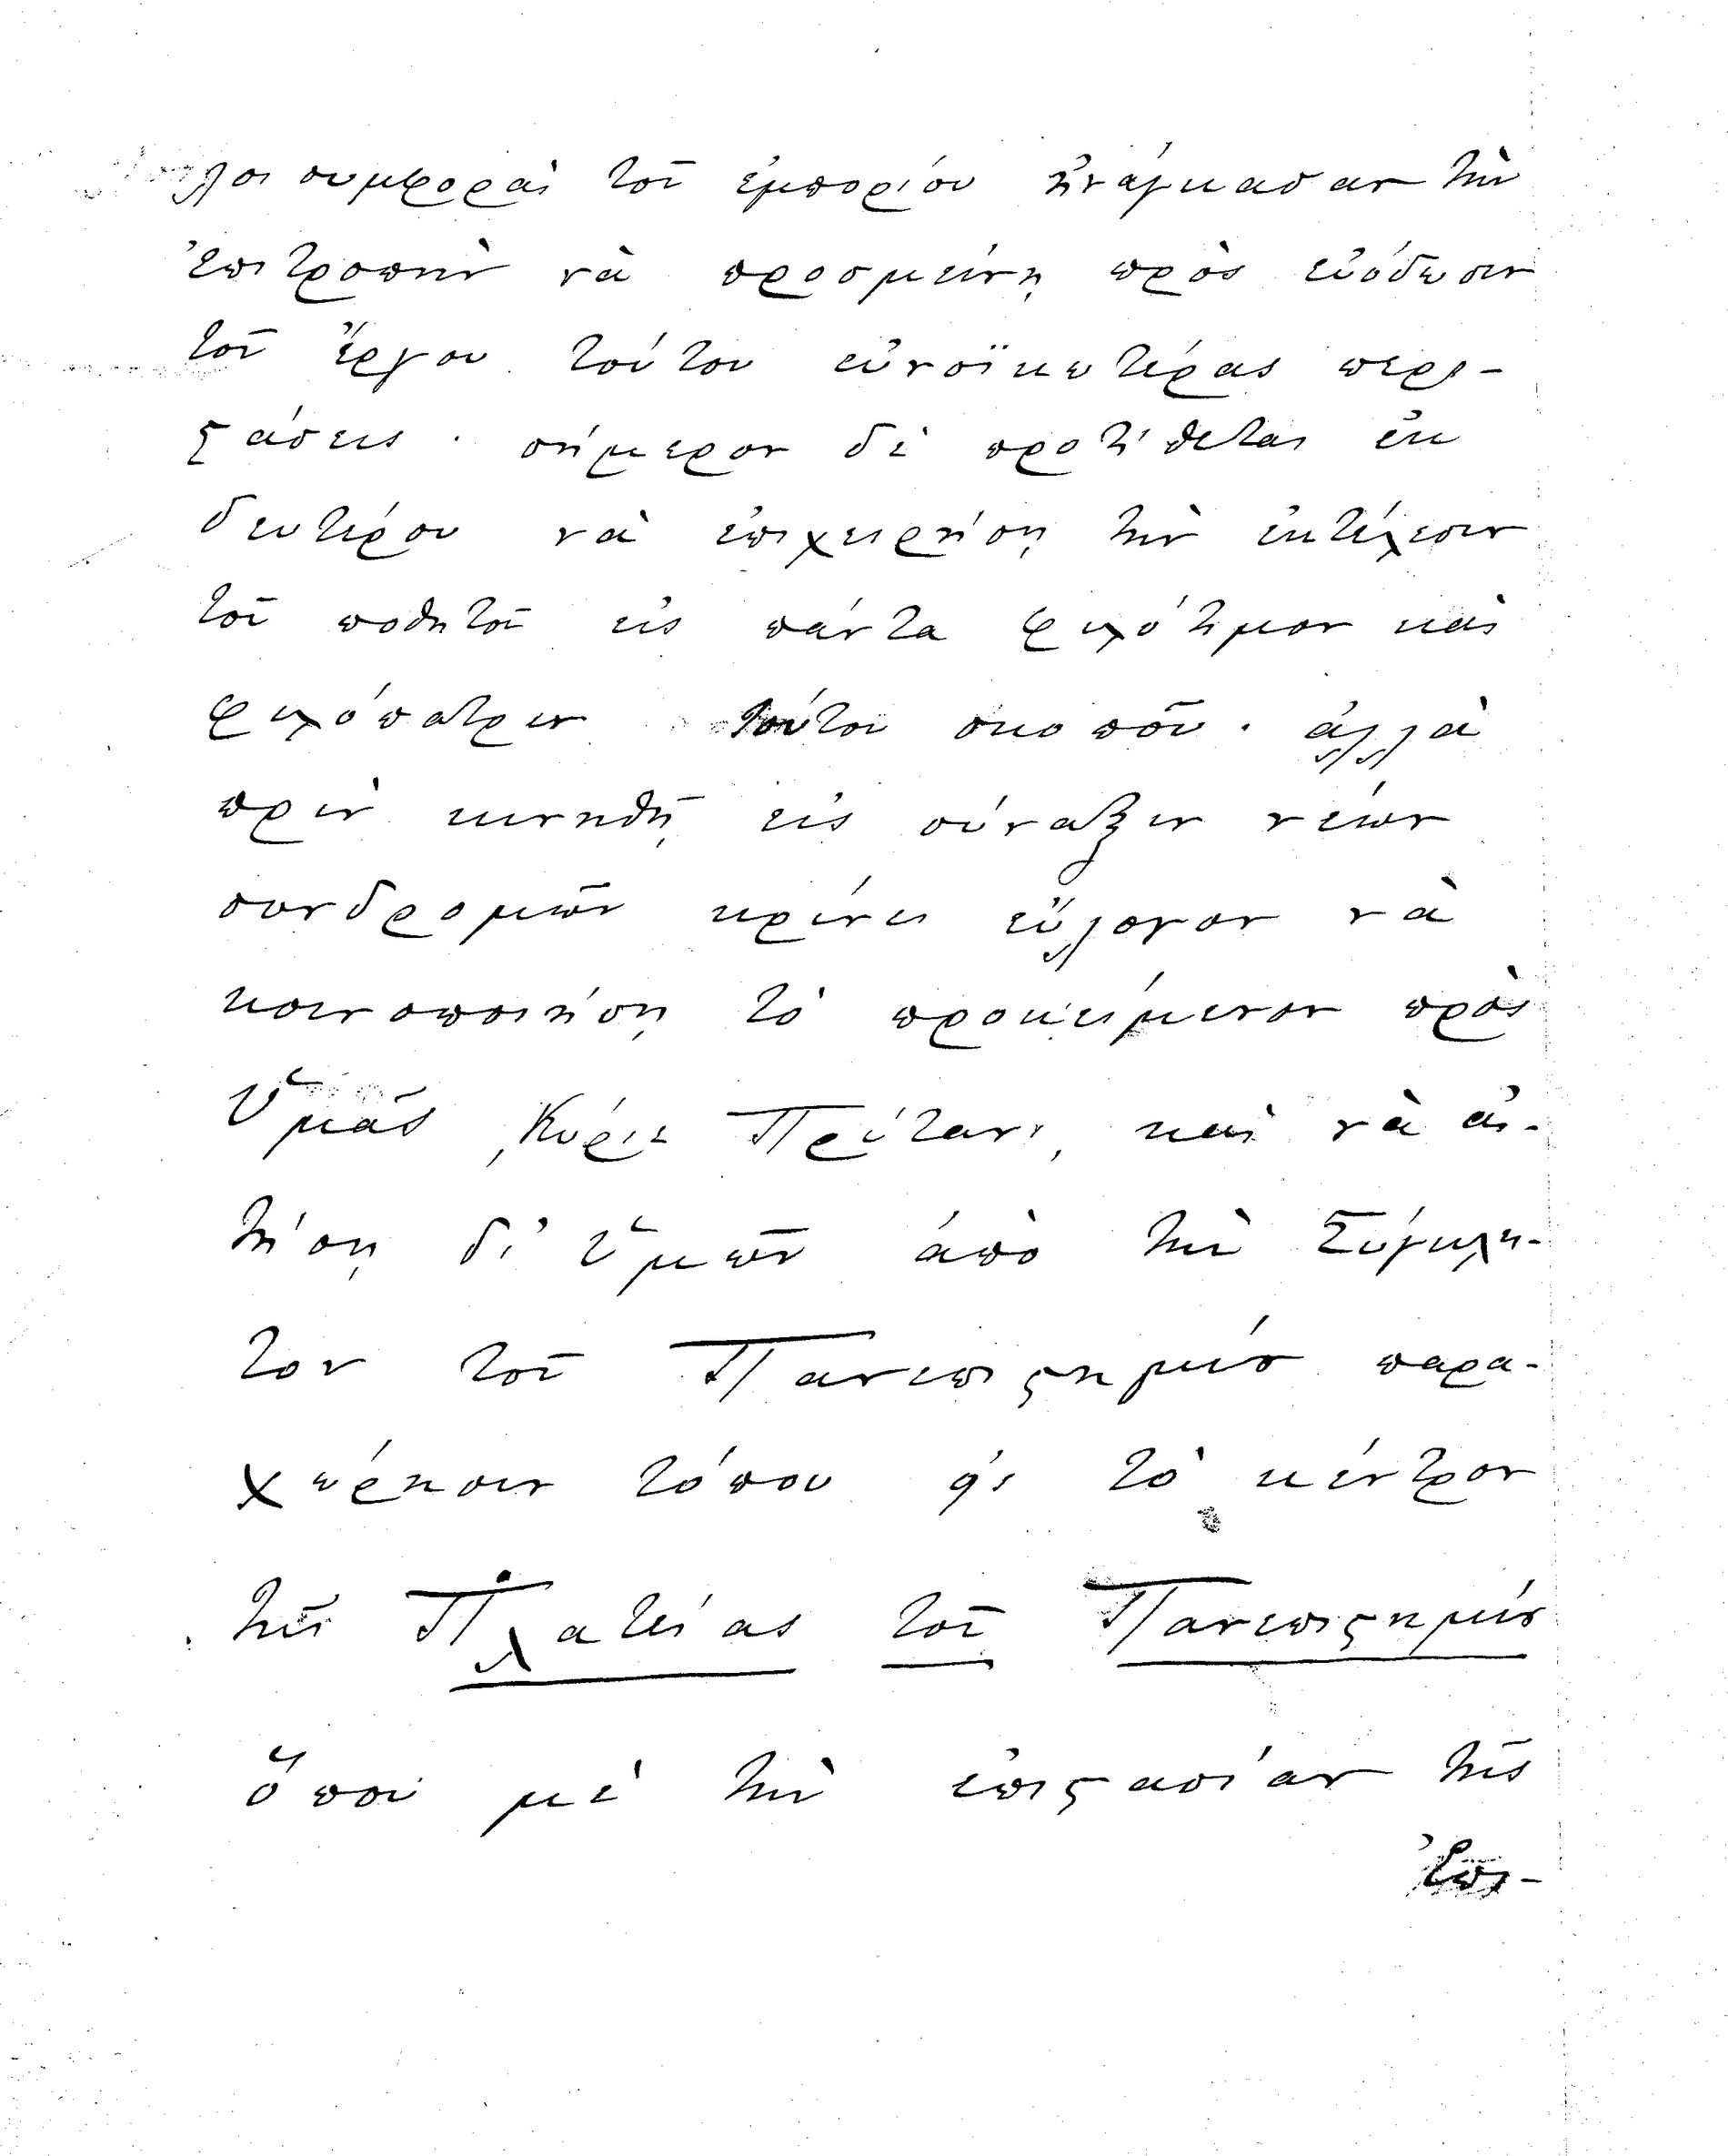 λοι συμφοραὶ τοῦ ἐμπορίου ἠνάγκασαν τὴν
Ἐπιτροπὴν νὰ προσμείνῃ πρὸς εὐόδωσιν
τοῦ ἔργου τούτου εὐνοϊκωτέρας περι-
ϛάσεις· σήμερον δὲ προτίθεται ἐκ
δευτέρου νὰ ἐπιχειρήσῃ τὴν ἐκτέλεσιν
τοῦ ποθητοῦ εἰς πάντα φιλότιμον καὶ
φιλόπατριν τούτου σκοποῦ· ἀλλὰ
πρὶν κινηθῇ εἰς σύναξιν νέων
συνδρομῶν κρίνει εὔλογον νὰ
κοινοποιήσῃ τὸ προκείμενον πρὸς
Ὑμᾶς, Κύριε Πρύτανι, καὶ νὰ αἰ-
τήσῃ δι' Ὑμῶν ἀπὸ τὴν Σύγκλη-
τον τοῦ Πανεπιϛημίου παρα-
χώρησιν τόπου εἰς τὸ κέντρον
τῆς Πλατείας τοῦ Πανεπιϛημίου
ὅπου μὲ τὴν ἐπιϛασίαν τῆς
Ἐπι-